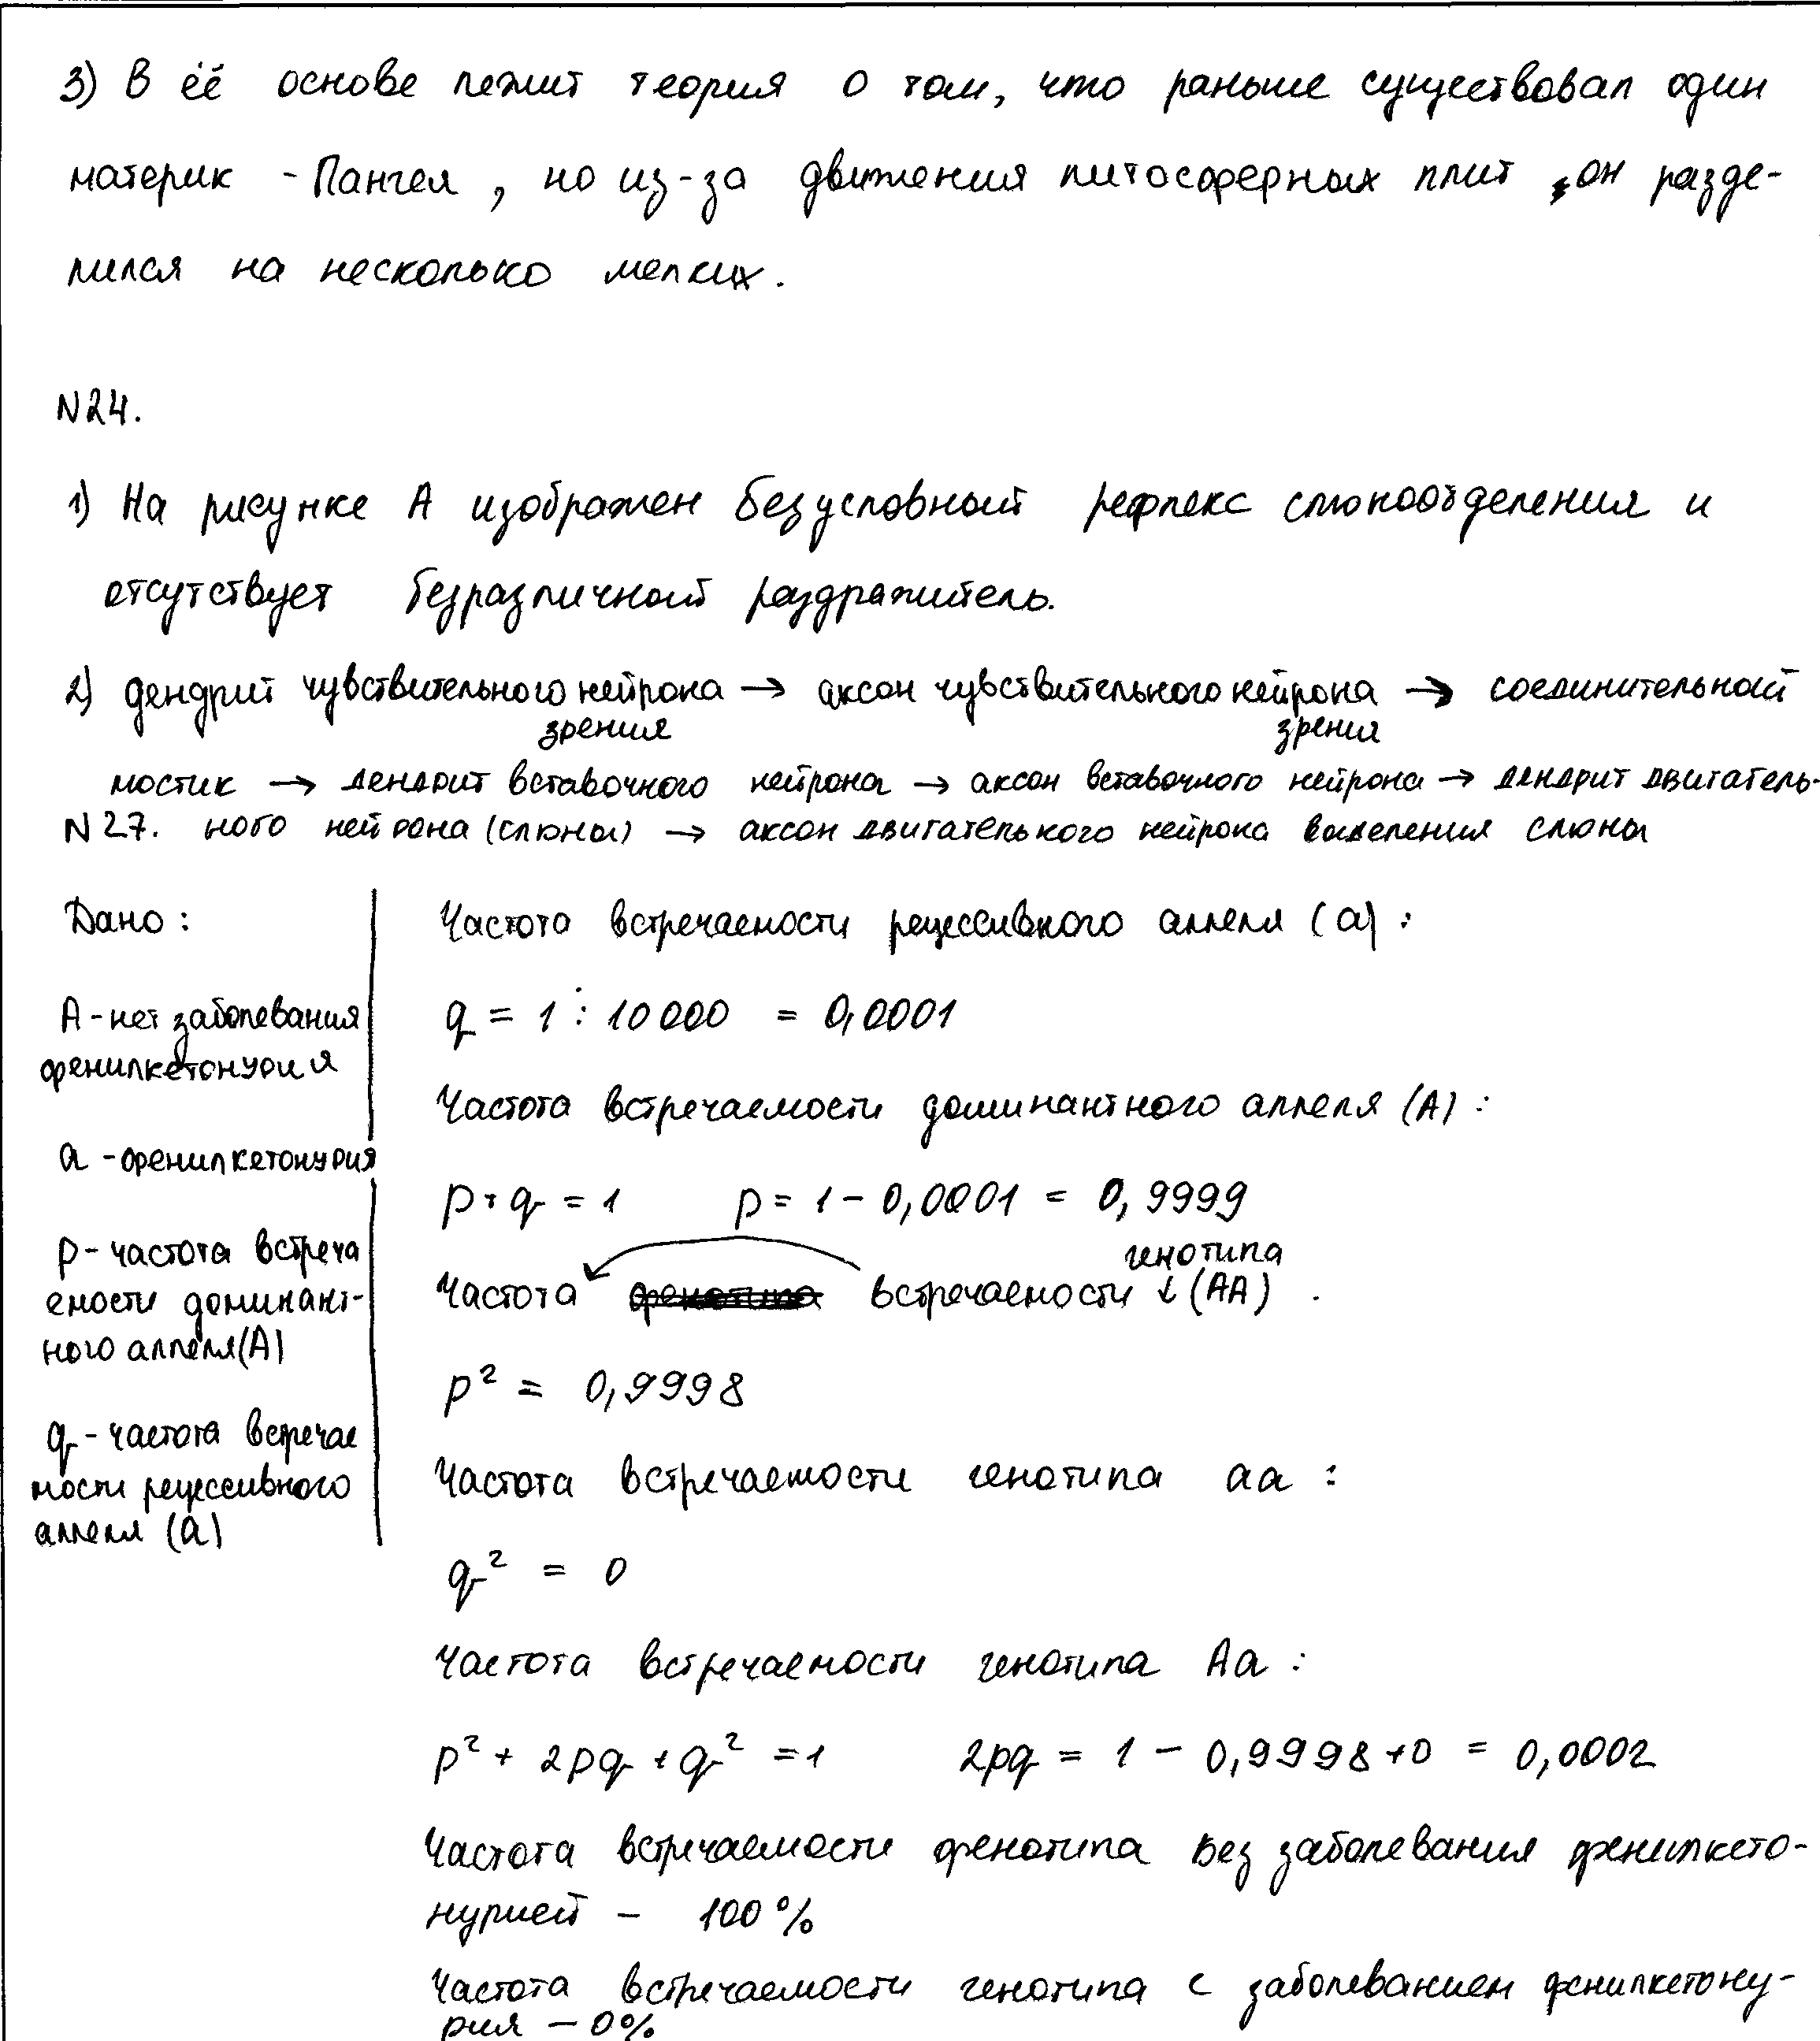 3) В её основе лежит теория о том, что раньше существовал один
материк - Пангея, но из-за движения литосферных плит, он разде-
лился на несколько мелких.
N24.
1) На рисунке А изображен безусловный рефлекс слюноотделения и
отсутствует безразличный раздражитель.
2) дендрит чувствительного нейрона → аксон чувствительного нейрона → соединительный
зрения зрения
мостик → дендрит вставочного нейрона → аксон вставочного нейрона → дендрит двигатель-
N27. ного нейрона (слюны) → аксон двигательного нейрона выделения слюны
Дано:
А - нет заболевания
фенилкетонурия
а - фенилкетонурия
p - частота встреча
емости доминант-
ного аллеля (А)
q - частота встречае
мости рецессивного
аллеля (а)
Частота встречаемости рецессивного аллеля (а):
q = 1 : 10000 = 0,0001
Частота встречаемости доминантного аллеля (А):
p + q = 1 p = 1 - 0,0001 = 0,9999
генотипа
Частота фенотипа встречаемости ↓ (АА).
p² = 0,9998
Частота встречаемости генотипа аа:
q² = 0
Частота встречаемости генотипа Аа:
p² + 2pq + q² = 1 2pq = 1 - 0,9998 + 0 = 0,0002
Частота встречаемости фенотипа без заболевания фенилкето-
нурией - 100%
Частота встречаемости генотипа с заболеванием фенилкетону-
рия - 0%